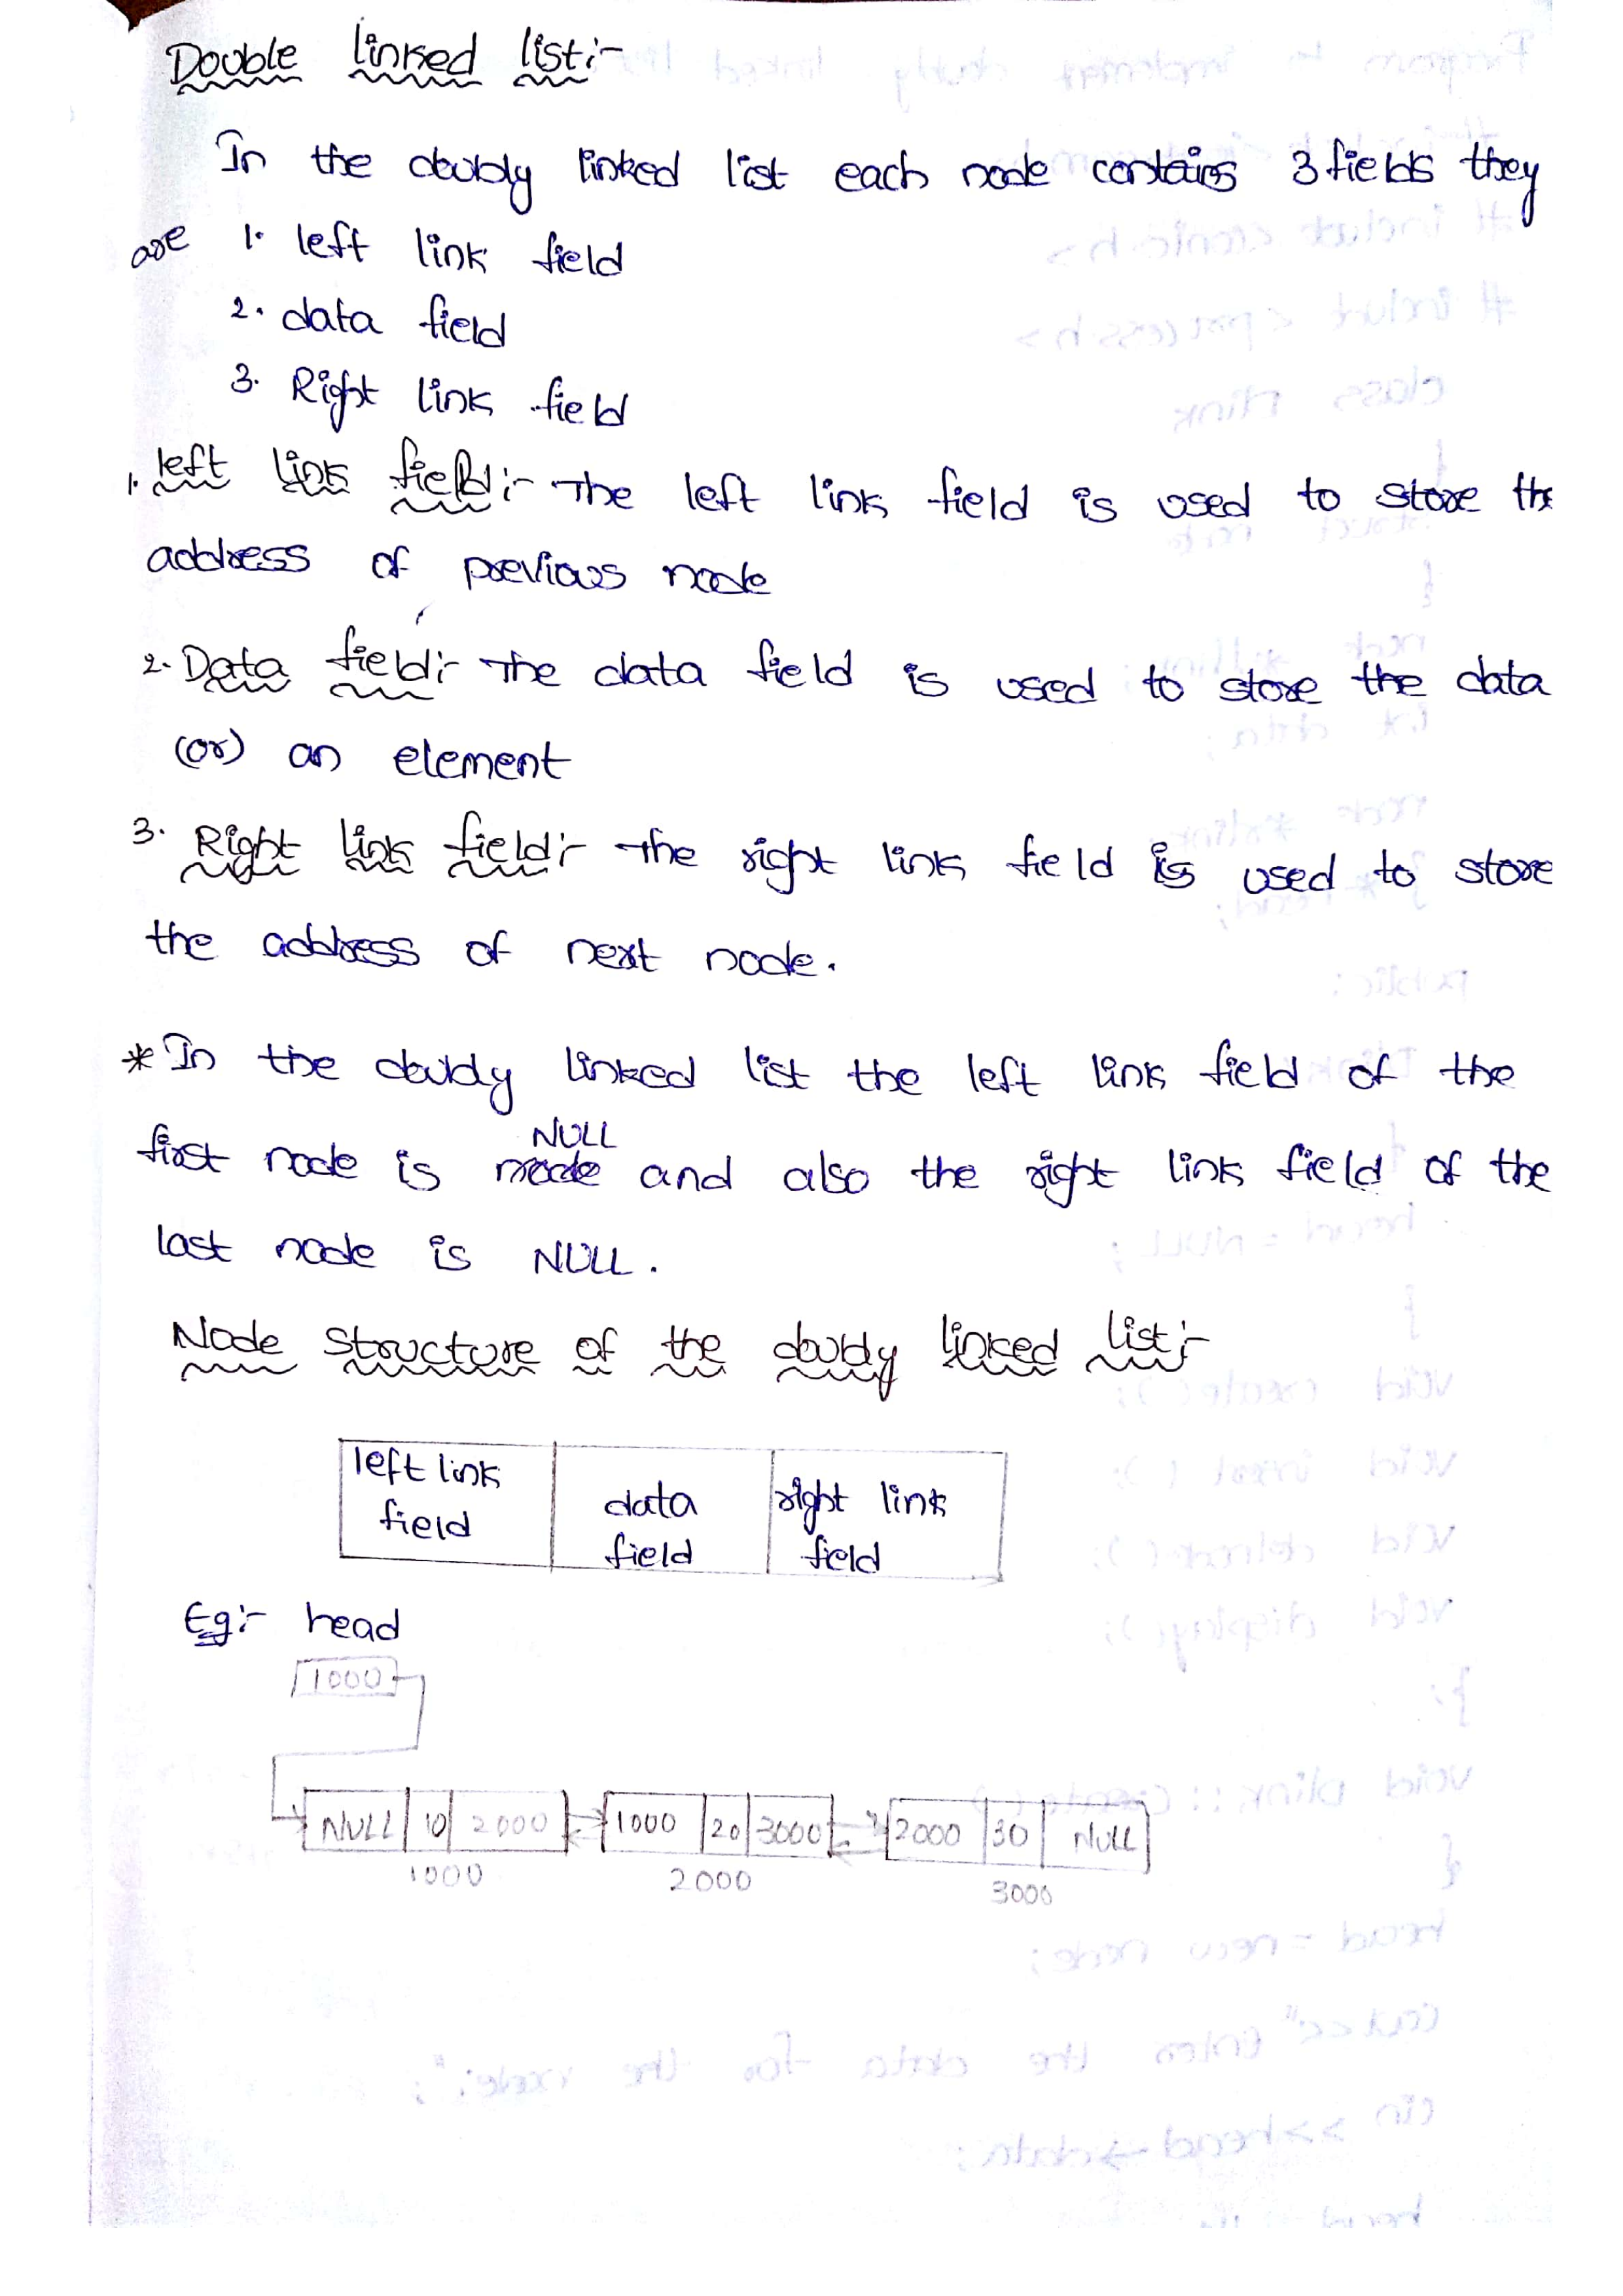 Double linked list:-
In the doubly linked list each node contains 3 fields they
are 1. left link field
2. data field
3. Right link field
1. left link field:- The left link field is used to store the
address of previous node
2. Data field:- The data field is used to store the data
(or) an element
3. Right link field:- The right link field is used to store
the address of next node.
* In the doubly linked list the left link field of the
NULL
first node is node and also the right link field of the
last node is NULL.
Node structure of the doubly linked list:-
left link field
data field
right link field
Eg:- head
1000
NULL 10 2000 1000 20 3000 2000 30 NULL
1000 2000 3000